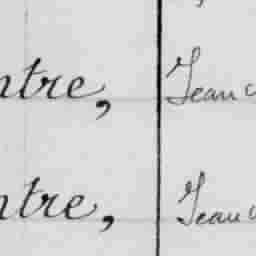 ntre, Jean
ntre, Jean